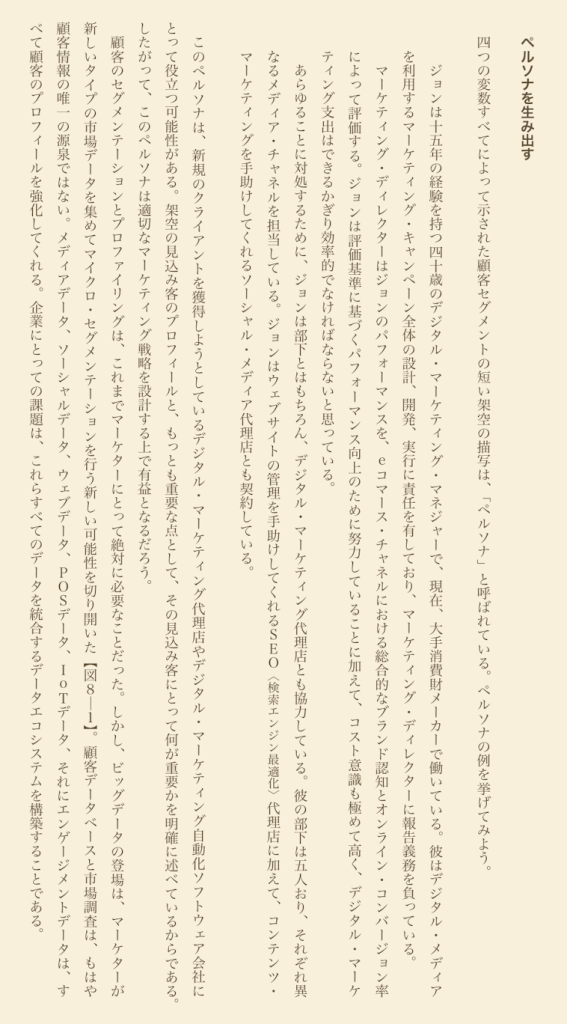 ペルソナを生み出す
四つの変数すべてによって示された顧客セグメントの短い架空の描写は、「ペルソナ」と呼ばれている。ペルソナの例を挙げてみよう。
ジョンは十五年の経験を持つ四十歳のデジタル・マーケティング・マネジャーで、現在、大手消費財メーカーで働いている。彼はデジタル・メディア
を利用するマーケティング・キャンペーン全体の設計、開発、実行に責任を有しており、マーケティング・ディレクターに報告義務を負っている。
マーケティング・ディレクターはジョンのパフォーマンスを、eコマース・チャネルにおける総合的なブランド認知とオンライン・コンバージョン率
によって評価する。ジョンは評価基準に基づくパフォーマンス向上のために努力していることに加えて、コスト意識も極めて高く、デジタル・マーケ
ティング支出はできるかぎり効率的でなければならないと思っている。
あらゆることに対処するために、ジョンは部下とはもちろん、デジタル・マーケティング代理店とも協力している。彼の部下は五人おり、それぞれ異
なるメディア・チャネルを担当している。ジョンはウェブサイトの管理を手助けしてくれるSEO〈検索エンジン最適化〉代理店に加えて、コンテンツ・
マーケティングを手助けしてくれるソーシャル・メディア代理店とも契約している。
このペルソナは、新規のクライアントを獲得しようとしているデジタル・マーケティング代理店やデジタル・マーケティング自動化ソフトウェア会社に
とって役立つ可能性がある。架空の見込み客のプロフィールと、もっとも重要な点として、その見込み客にとって何が重要かを明確に述べているからである。
したがって、このペルソナは適切なマーケティング戦略を設計する上で有益となるだろう。
顧客のセグメンテーションとプロファイリングは、これまでマーケターにとって絶対に必要なことだった。しかし、ビッグデータの登場は、マーケターが
新しいタイプの市場データを集めてマイクロ・セグメンテーションを行う新しい可能性を切り開いた【図8―1】。顧客データベースと市場調査は、もはや
顧客情報の唯一の源泉ではない。メディアデータ、ソーシャルデータ、ウェブデータ、POSデータ、IoTデータ、それにエンゲージメントデータは、す
べて顧客のプロフィールを強化してくれる。企業にとっての課題は、これらすべてのデータを統合するデータエコシステムを構築することである。